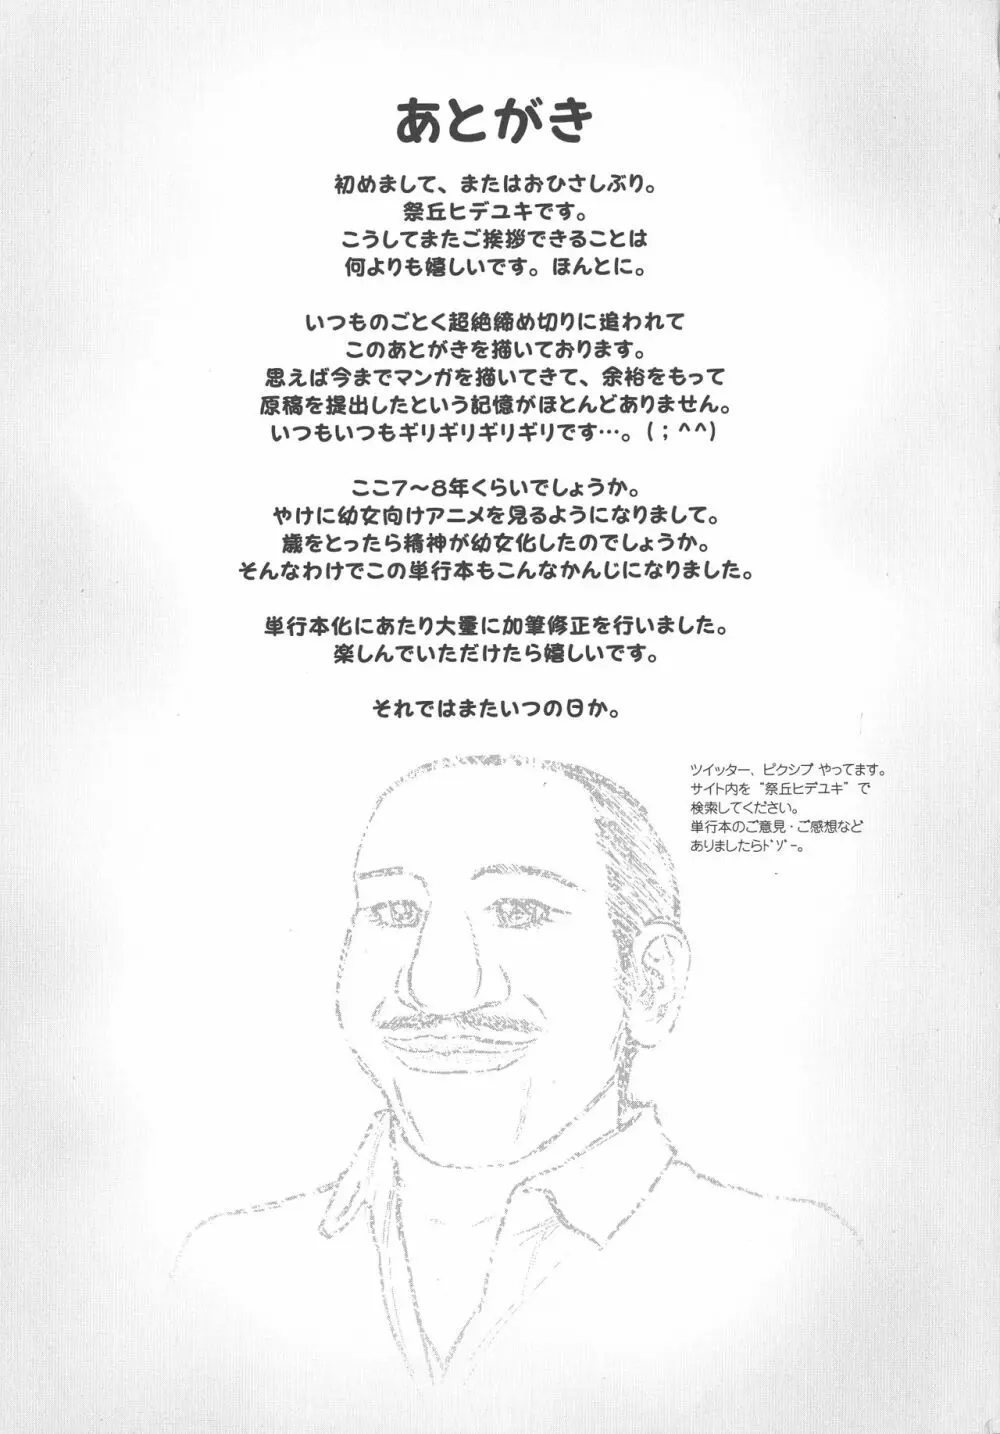 あとがき
初めまして、またはおひさしぶり。
祭丘ヒデユキです。
こうしてまたご挨拶できることは
何よりも嬉しいです。ほんとに。
いつものごとく超絶締め切りに追われて
このあとがきを描いております。
思えば今までマンガを描いてきて、余裕をもって
原稿を提出したという記憶がほとんどありません。
いつもいつもギリギリギリギリです…。(；^^)
ここ7～8年くらいでしょうか。
やけに幼女向けアニメを見るようになりまして。
歳をとったら精神が幼女化したのでしょうか。
そんなわけでこの単行本もこんなかんじになりました。
単行本化にあたり大量に加筆修正を行いました。
楽しんでいただけたら嬉しいです。
それではまたいつの日か。
ツイッター、ピクシブ やってます。
サイト内を “祭丘ヒデユキ” で
検索してください。
単行本のご意見・ご感想など
ありましたらﾄﾞｿﾞｰ。